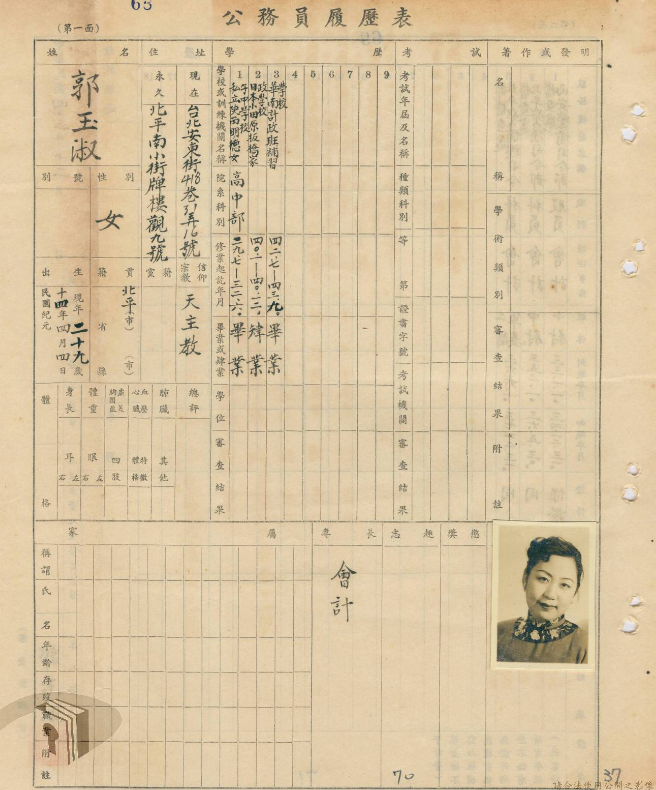 63
公務員履歷表
（第一面）
姓名
郭玉淑
別號
性別
女
出生
民國紀元
十四年四月四日
現年二十九歲
籍貫
北平（市）
省縣（市）
住址
永久
北平南小街牌樓觀九號
現在
台北安東街418巷31弄16號
黨籍
宗教信仰
天主教
體格
身長
體重
心臟
血壓
肺臟
總評
耳
右
左
眼
右
左
四肢
體格
特徵
其他
學歷
學校或訓練機關名稱
院系科別
修業起訖年月
畢業或肄業
學位
審查結果
1
高中部
二九、七—三二、六、
畢業
2
四〇、一—四〇、一二、
肄業
3
四二、七—四三、九、
畢業
4
5
6
7
8
9
考試
考試年屆及名稱
種類科別
等第
證書字號
考試機關
審查結果
著作或發明
名稱
學術類別
審查結果
附註
家屬
稱謂
氏名
年齡
存歿
職業
附註
專長
會計
志趣
獎懲
70
37